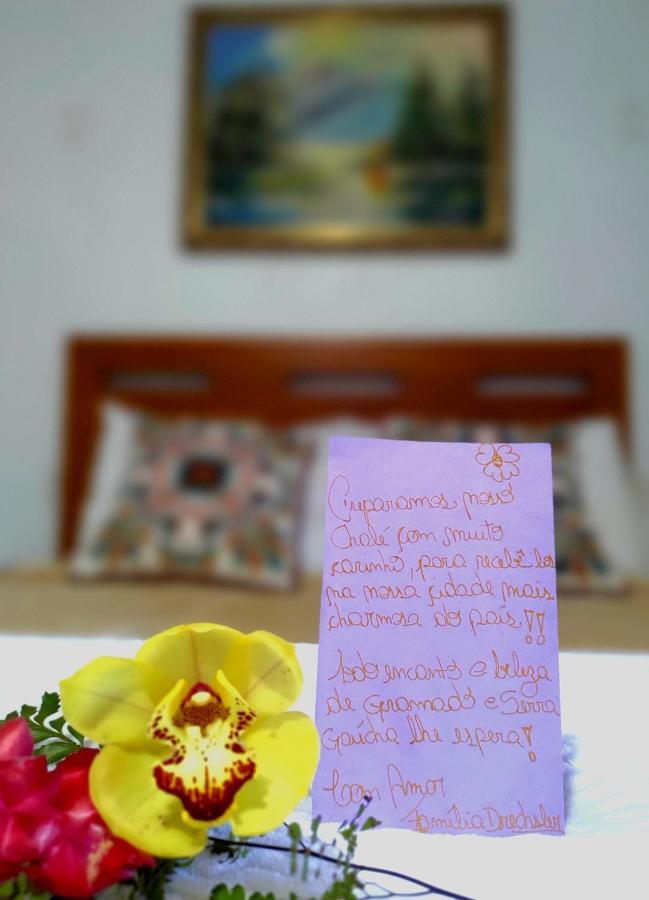 Preparamos nosso
Chalé com muito
carinho, para recebê-los
na nossa cidade mais
charmosa do país!!
Todo encanto e beleza
de Gramado e Serra
Gaúcha lhe espera!
Com Amor
Família Drechsler